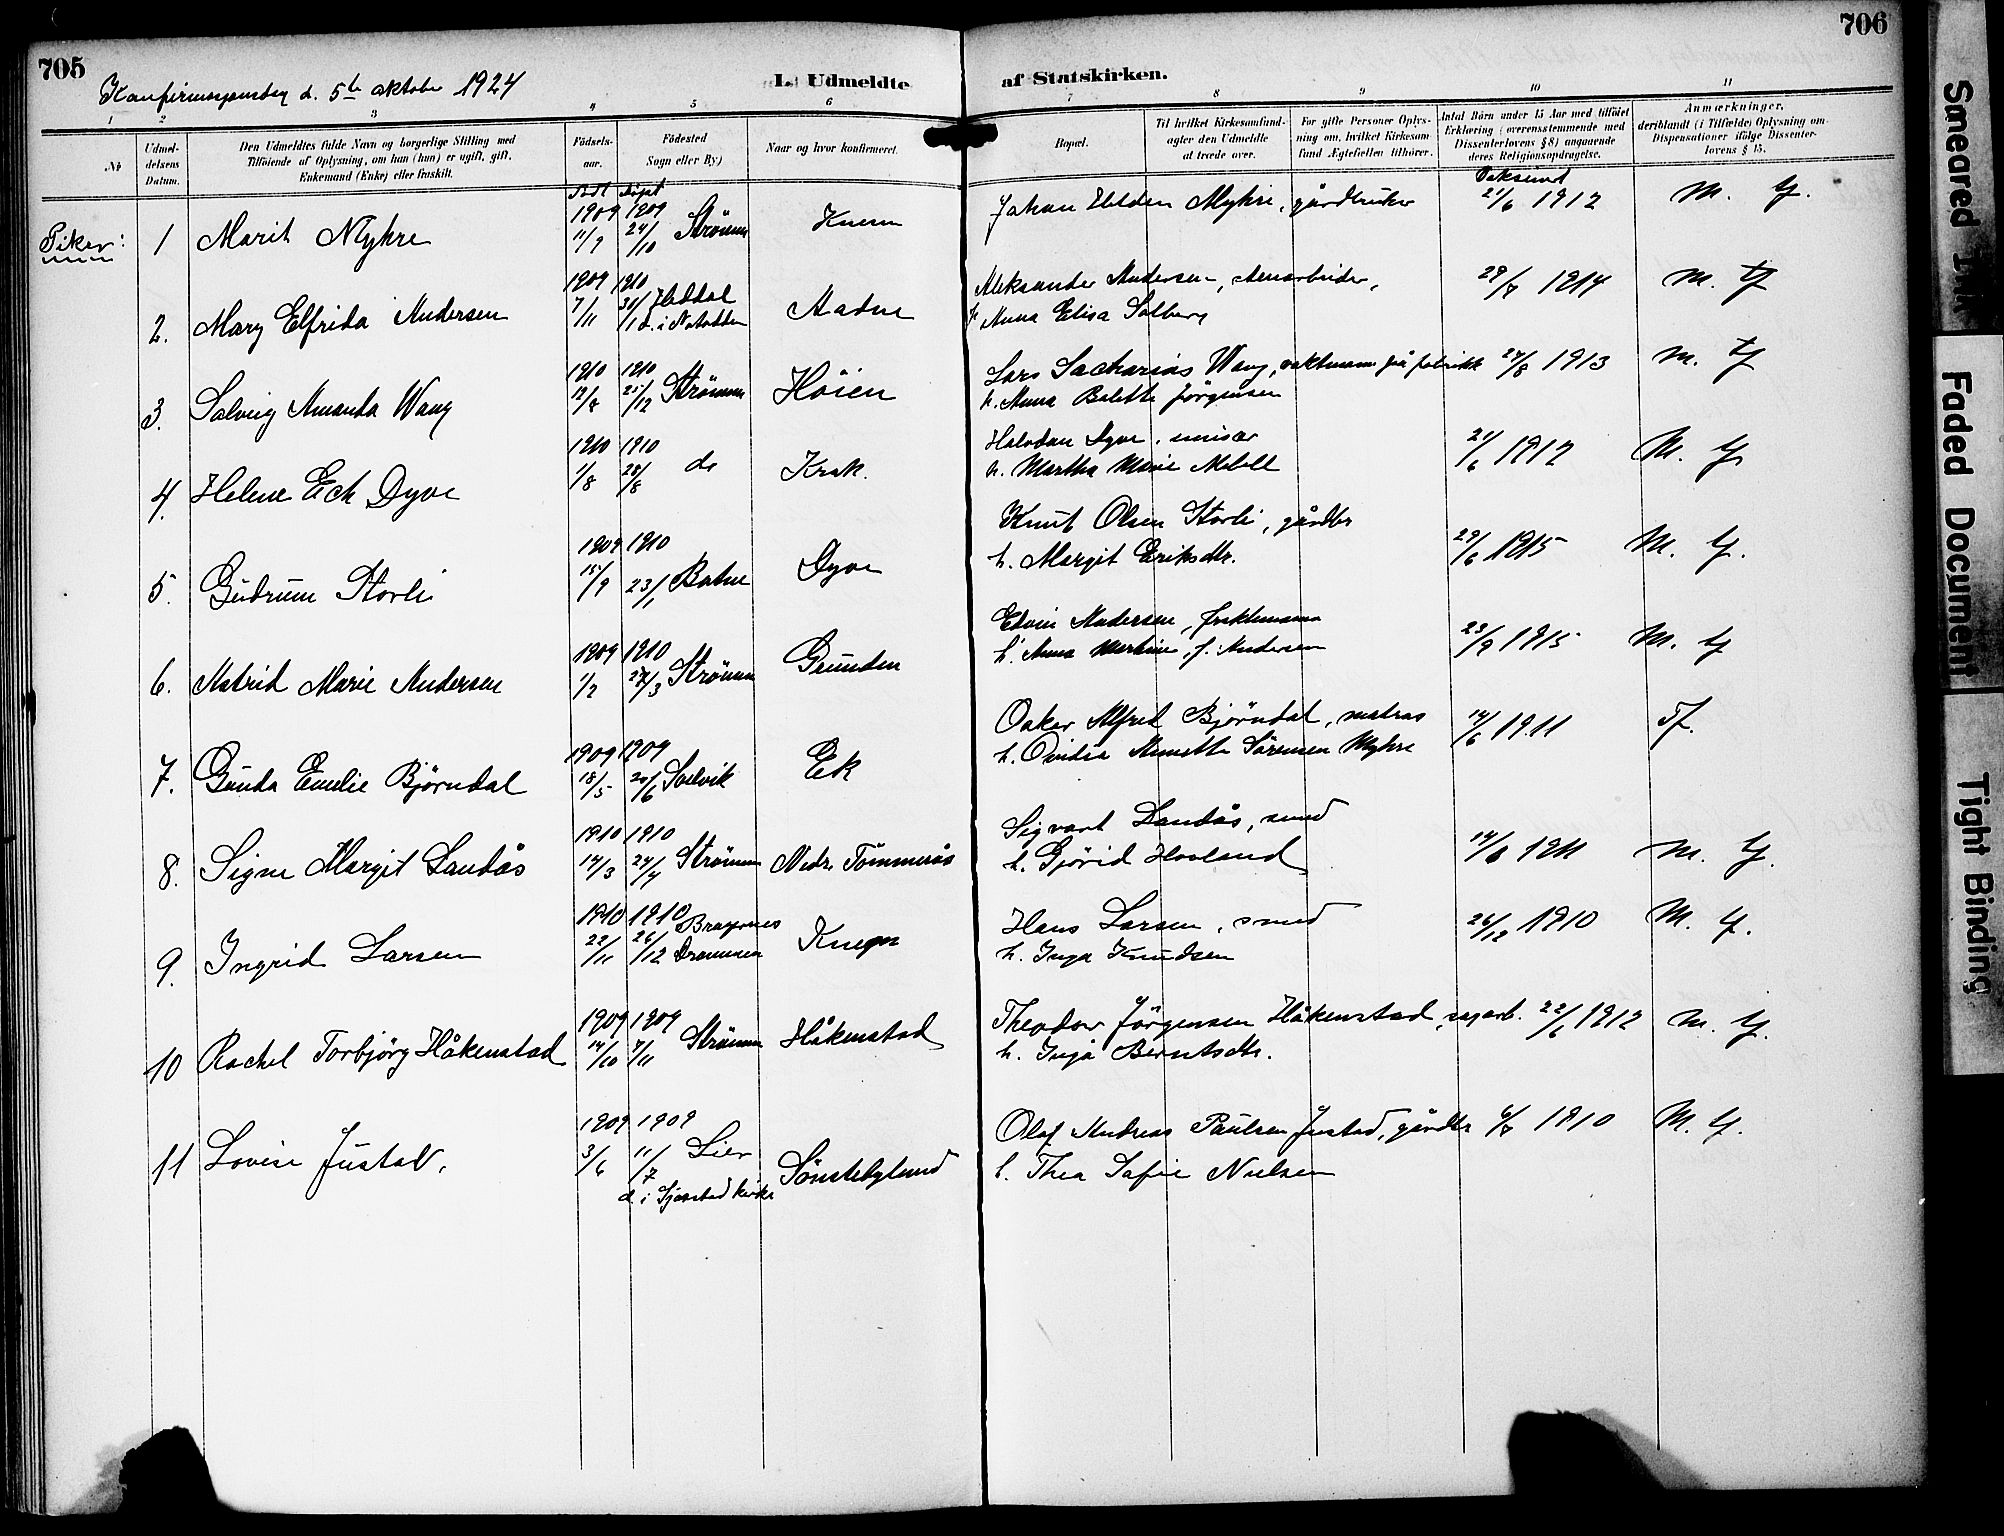 705
706
Konfirmasjonsdag d. 5te oktober 1924
L. Udmeldte
af Statskirken.
1 2 3 4 5 6 7 8 9 10 11
No
Udmeldelsens Datum.
Den Udmeldtes fulde Navn og borgerlige Stilling med Tilföiende af Oplysning, om han (hun) er ugift, gift, Enkemand (Enke) eller fraskilt.
Födselsaar.
Födested Sogn eller By)
Naar og hvor konfirmeret.
Bopæl.
Til hvilket Kirkesamfund agter den Udmeldte at træde over.
For gifte Personer Oplysning om, hvilket Kirkesamfund Ægtefællen tilhörer.
Antal Börn under 15 Aar med tilföiet Erklæring (overensstemmende med Dissenterlovens §8) angaaende deres Religionsopdragelse.
Anmærkninger, deriblandt (i Tilfælde) Oplysning om Dispensationer ifölge Dissenterlovens § 15.
født døpt
Vaksinert
Piker:
1 Marit Myhre 1909 11/9 1909 24/10 Strømm Knem Johan Myhre, gårdbruker 21/6 1912 M. G.
2. Mary Elfrida Andersen 1909 7/11 1910 30/1 Heddal d. i Notodden Aadne Aleksander Andersen, stenarbeider,
h. Anna Elisa Solberg 29/7 1914 M. G
3. Solveig Amanda Wang 1910 12/8 1910 25/12 Strømm Høien Lars Sacharias Wang, vaktmann på fabrikk
h. Anna Bolette Jörgensen 24/8 1913 M. G
4. Helene Eek Dyve 1910 1/8 1910 28/8 do Krok. Halvdan Dyve,
h. Martha Marie 21/6 1912 M. G.
5. Gudrun Storli 1909 15/9 1910 23/1 Botne Dyve Knut Olsen Storli, gårdbr
h. Margit Eriksdtr. 29/6 1915 M. G.
6. Astrid Marie Andersen 1909 1/2 1910 27/3 Strømm Grunden Edvin Andersen, fraktemann
h. Anna Martine, f. Andersen 23/9 1915 M. G
7. Gunda Emilie Bjørndal 1909 18/5 1909 20/6 Svelvik Ek Oskar Alfred Bjørndal, matros
h. Ovidia Annette Sörensen Myhre 14/6 1911 Tf.
8. Signe Margit Landås 1910 14/3 1910 24/4 Strømm Nedr. Tömmerås Sigvart Landås, smed
h. Gjørid Hovland 14/6 1911 M. G.
9. Ingrid Larsen 1910 22/11 1910 26/12 Bragernes Drammen Hans Larsen, smed
h. Inga Knudsen 26/12 1910 M. G.
10 Rachel Torbjörg Håkenstad 1909 14/10 1909 7/11 Strømm Håkenstad Theodor Jörgensen Håkenstad, sagarb.
h. Inga Berntsdtr. 22/6 1912 M. G.
11 Lovise Justad. 1909 3/6 1909 11/7 Lier d. i Sjøstad kirke Sönstebylund Olaf Andreas Paulsen Justad, gårdbr
h. Thea Sofie Nielsen 6/7 1910 M. G.
Smeared Ink
Faded Document
Tight Binding